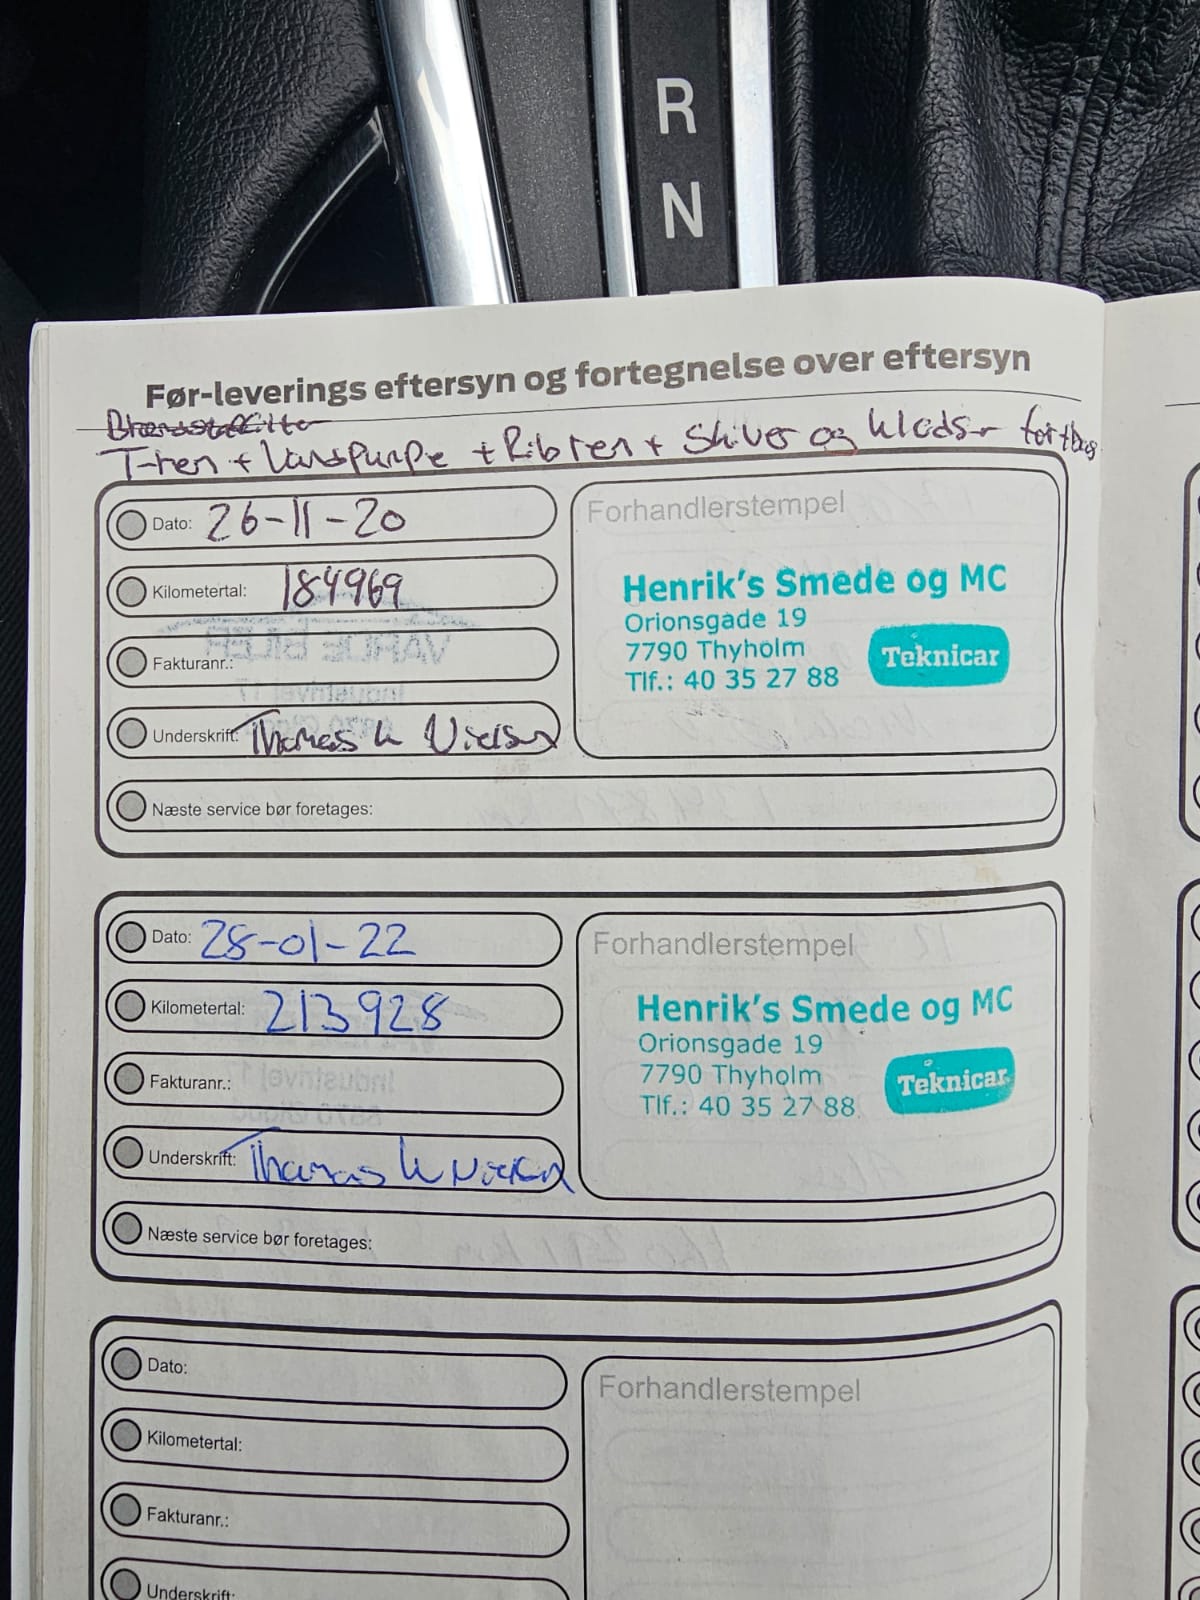 R
N
Før-leverings eftersyn og fortegnelse over eftersyn
Brændstoffilter
T-rem + Vandpumpe + Ribrem + Skiver og klodser for + bag
Dato: 26-11-20
Kilometertal: 184969
Fakturanr.:
Underskrift: Thomas K Nielsen
Næste service bør foretages:
Forhandlerstempel
Henrik's Smede og MC
Orionsgade 19
7790 Thyholm
Tlf.: 40 35 27 88
Teknicar
Dato: 28-01-22
Kilometertal: 213928
Fakturanr.:
Underskrift: Thomas K Nielsen
Næste service bør foretages:
Forhandlerstempel
Henrik's Smede og MC
Orionsgade 19
7790 Thyholm
Tlf.: 40 35 27 88
Teknicar
Dato:
Kilometertal:
Fakturanr.:
Underskrift:
Forhandlerstempel